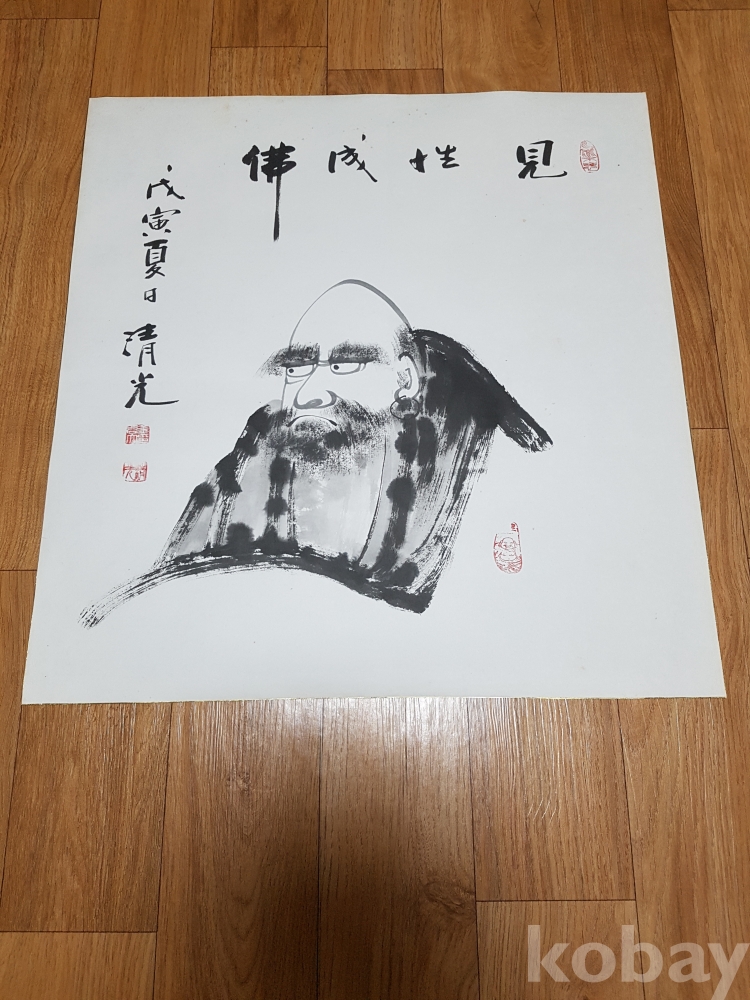 見性成佛
戊寅夏日 清光
kobay